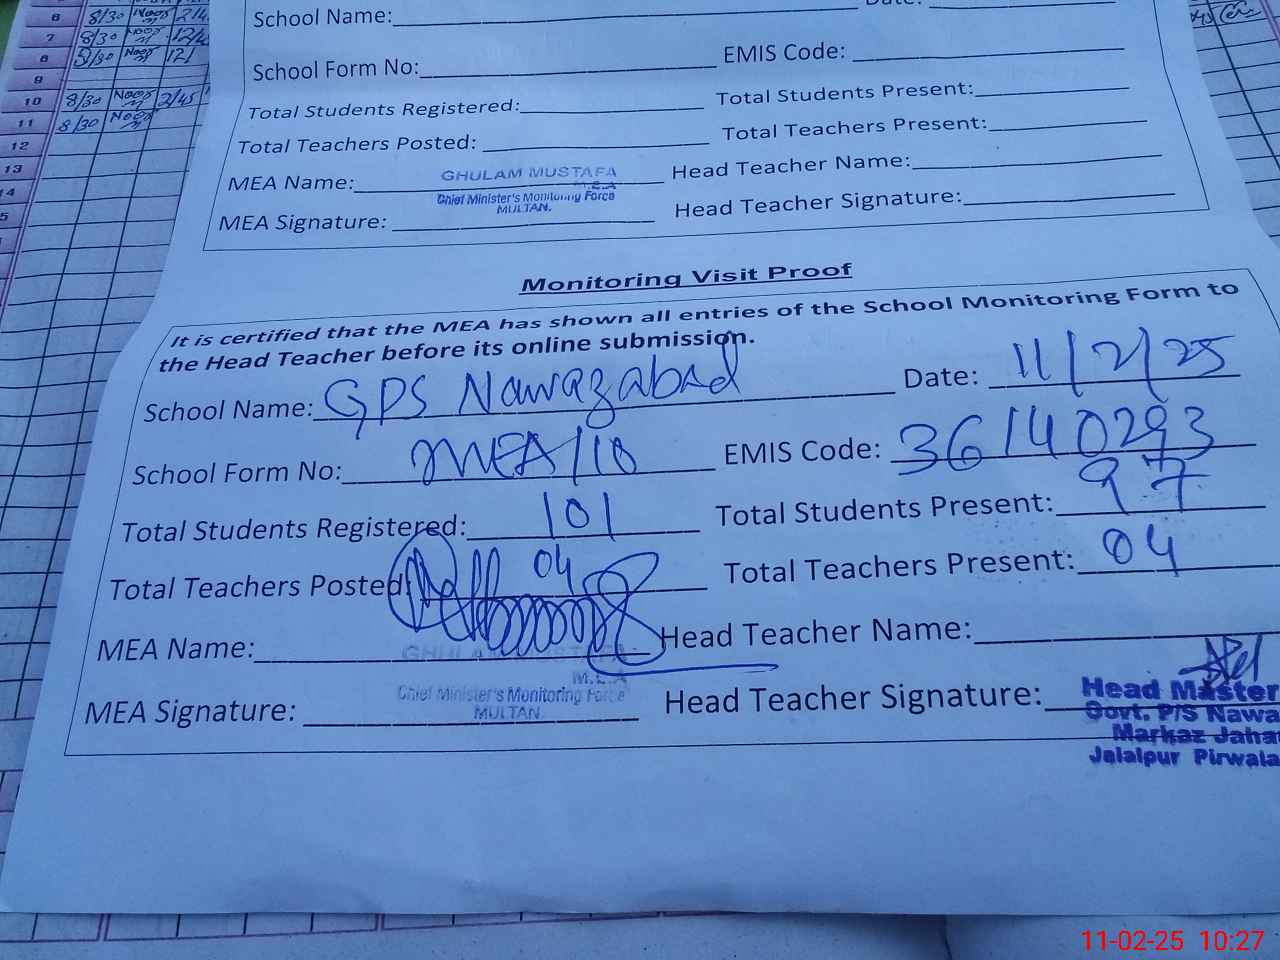 6 8/30 Noor
7 8/30 Noor
8 8/30 Noor 121
9
10 8/30 Noor 2/45
11 8/30 Noor
12
13
14
School Name:
School Form No: EMIS Code:
Total Students Registered: Total Students Present:
Total Teachers Posted: Total Teachers Present:
MEA Name: Head Teacher Name:
GHULAM MUSTAFA
M.E.A
Chief Minister's Monitoring Force
MULTAN.
MEA Signature: Head Teacher Signature:
Monitoring Visit Proof
It is certified that the MEA has shown all entries of the School Monitoring Form to
the Head Teacher before its online submission.
School Name: GPS Nawazabad Date: 11/2/25
School Form No: MEA/10 EMIS Code: 36140293
Total Students Registered: 101 Total Students Present: 97
Total Teachers Posted 04 Total Teachers Present: 04
MEA Name: Head Teacher Name:
GHULAM MUSTAFA
M.E.A
Chief Minister's Monitoring Force
MULTAN
MEA Signature: Head Teacher Signature:
Head Master
Govt. P/S Nawa
Markaz Jaha
Jalalpur Pirwala
11-02-25 10:27